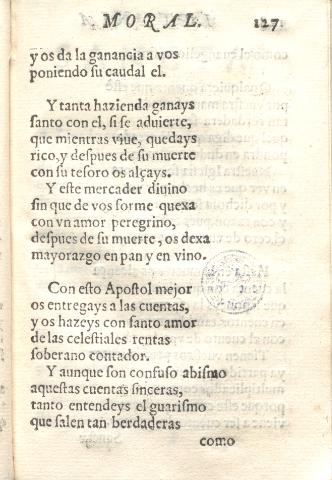 MORAL. 127.
y os da la ganancia a vos
poniendo su caudal el.
Y tanta hazienda ganays
santo con el, si se aduierte,
que mientras viue, quedays
rico, y despues de su muerte
con su tesoro os alçays.
Y este mercader diuino
sin que de vos forme quexa
con vn amor peregrino,
despues de su muerte, os dexa
mayorazgo en pan y en vino.
Con esto Apostol mejor
os entregays a las cuentas,
y os hazeys con santo amor
de las celestiales rentas
soberano contador.
Y aunque son confuso abismo
aquestas cuentas sinceras,
tanto entendeys el guarismo
que salen tan berdaderas
como